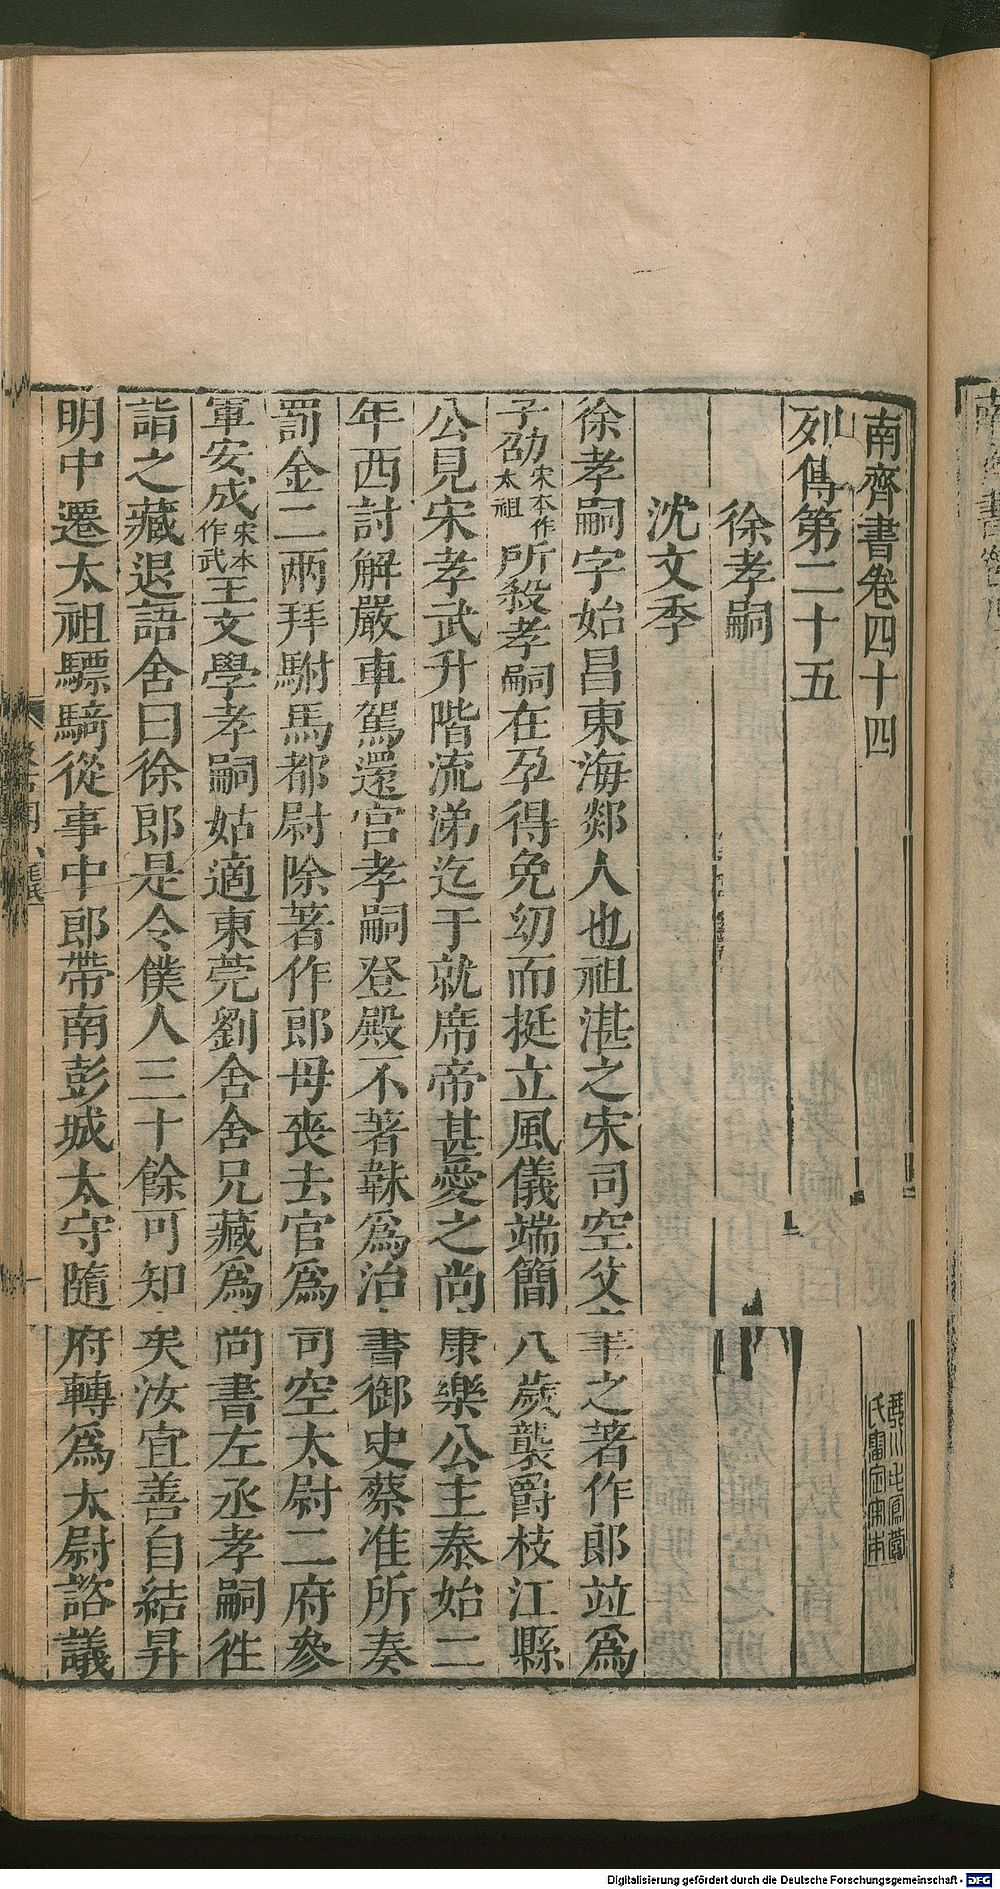 南齊書卷四十四
列傳第二十五
徐孝嗣
沈文季
徐孝嗣字始昌東海郯人也祖湛之宋司空父聿之著作郎竝爲
子劭宋本作太祖所殺孝嗣在孕得免幼而挺立風儀端簡八歲襲爵枝江縣
公見宋孝武升階流涕迄于就席帝甚愛之尚康樂公主泰始二
年西討解嚴車駕還宮孝嗣登殿不著韎爲治書御史蔡准所奏
罰金二兩拜駙馬都尉除著作郎母喪去官爲司空太尉二府參
軍安成宋本作武王文學孝嗣姑適東莞劉舍舍兄藏爲尚書左丞孝嗣徃
詣之藏退語舍曰徐郎是令僕人三十餘可知矣汝宜善自結昇
明中遷太祖驃騎從事中郎帶南彭城太守隨府轉爲太尉諮議
氏審定宋本
Digitalisierung gefördert durch die Deutsche Forschungsgemeinschaft - DFG